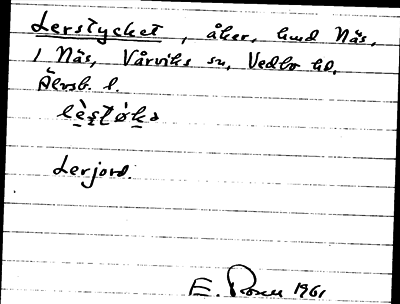 Lerstycket, åker, hmd Näs,
1 Näs, Vårviks sn, Vedbo hd,
Älvsb. l.
Lerjord.
E. 1961